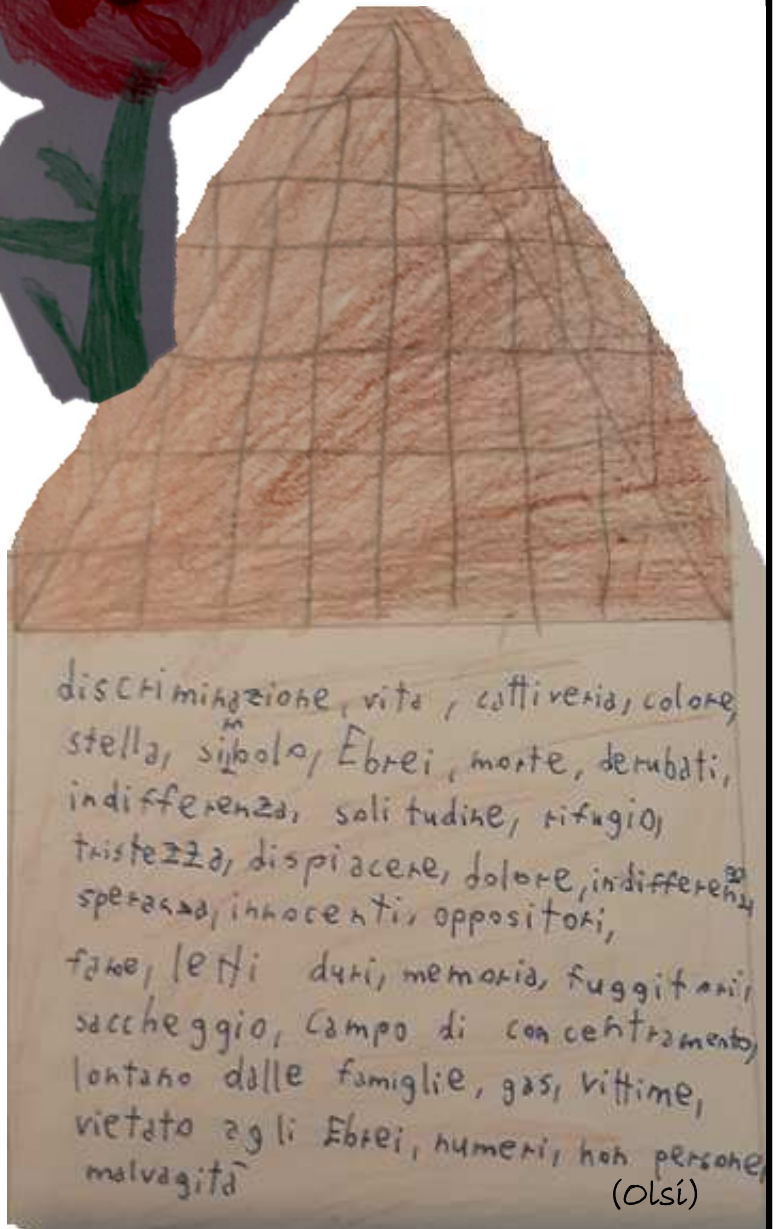 discriminazione, vita, cattiveria, colore,
stella, simbolo, Ebrei, morte, derubati,
indifferenza, solitudine, rifugio,
tristezza, dispiacere, dolore, indifferenza
speranza, innocenti, oppositori,
fame, letti duri, memoria,
saccheggio, campo di concentramento,
lontano dalle famiglie, gas, vittime,
vietato agli Ebrei, numeri, non persone,
malvagità
(Olsi)